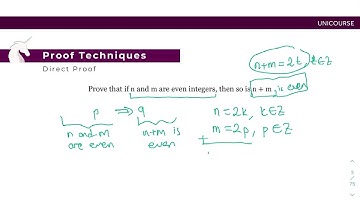 UNICOURSE
Proof Techniques
Direct Proof
n+m=2t, t∈Z
Prove that if n and m are even integers, then so is n + m
is even
p ⇒ q
n and m are even
n+m is even
n=2k, k∈Z
m=2p, p∈Z
+
3
/
75